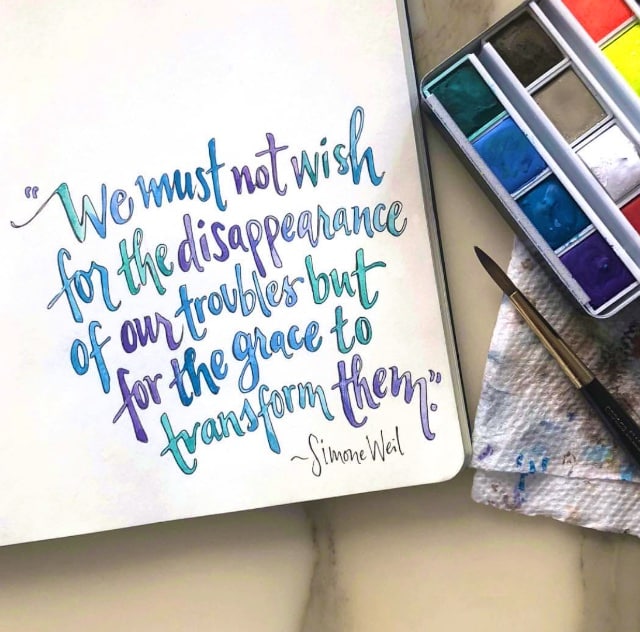 "We must not wish
for the disappearance
of our troubles but
for the grace to
transform them."
~Simone Weil